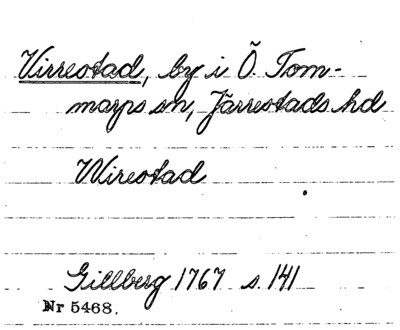 Virrestad, by i Ö. Tom-
marps sn, Järrestads hd
Wirestad
Gillberg 1767 s. 141
Nr 5468.